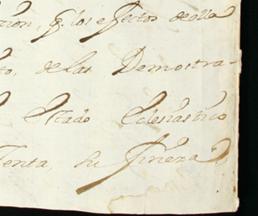 cion, q. los efectos de ella
to, de las Demostra-
Estado Eclesiastico
tenta, su fineza